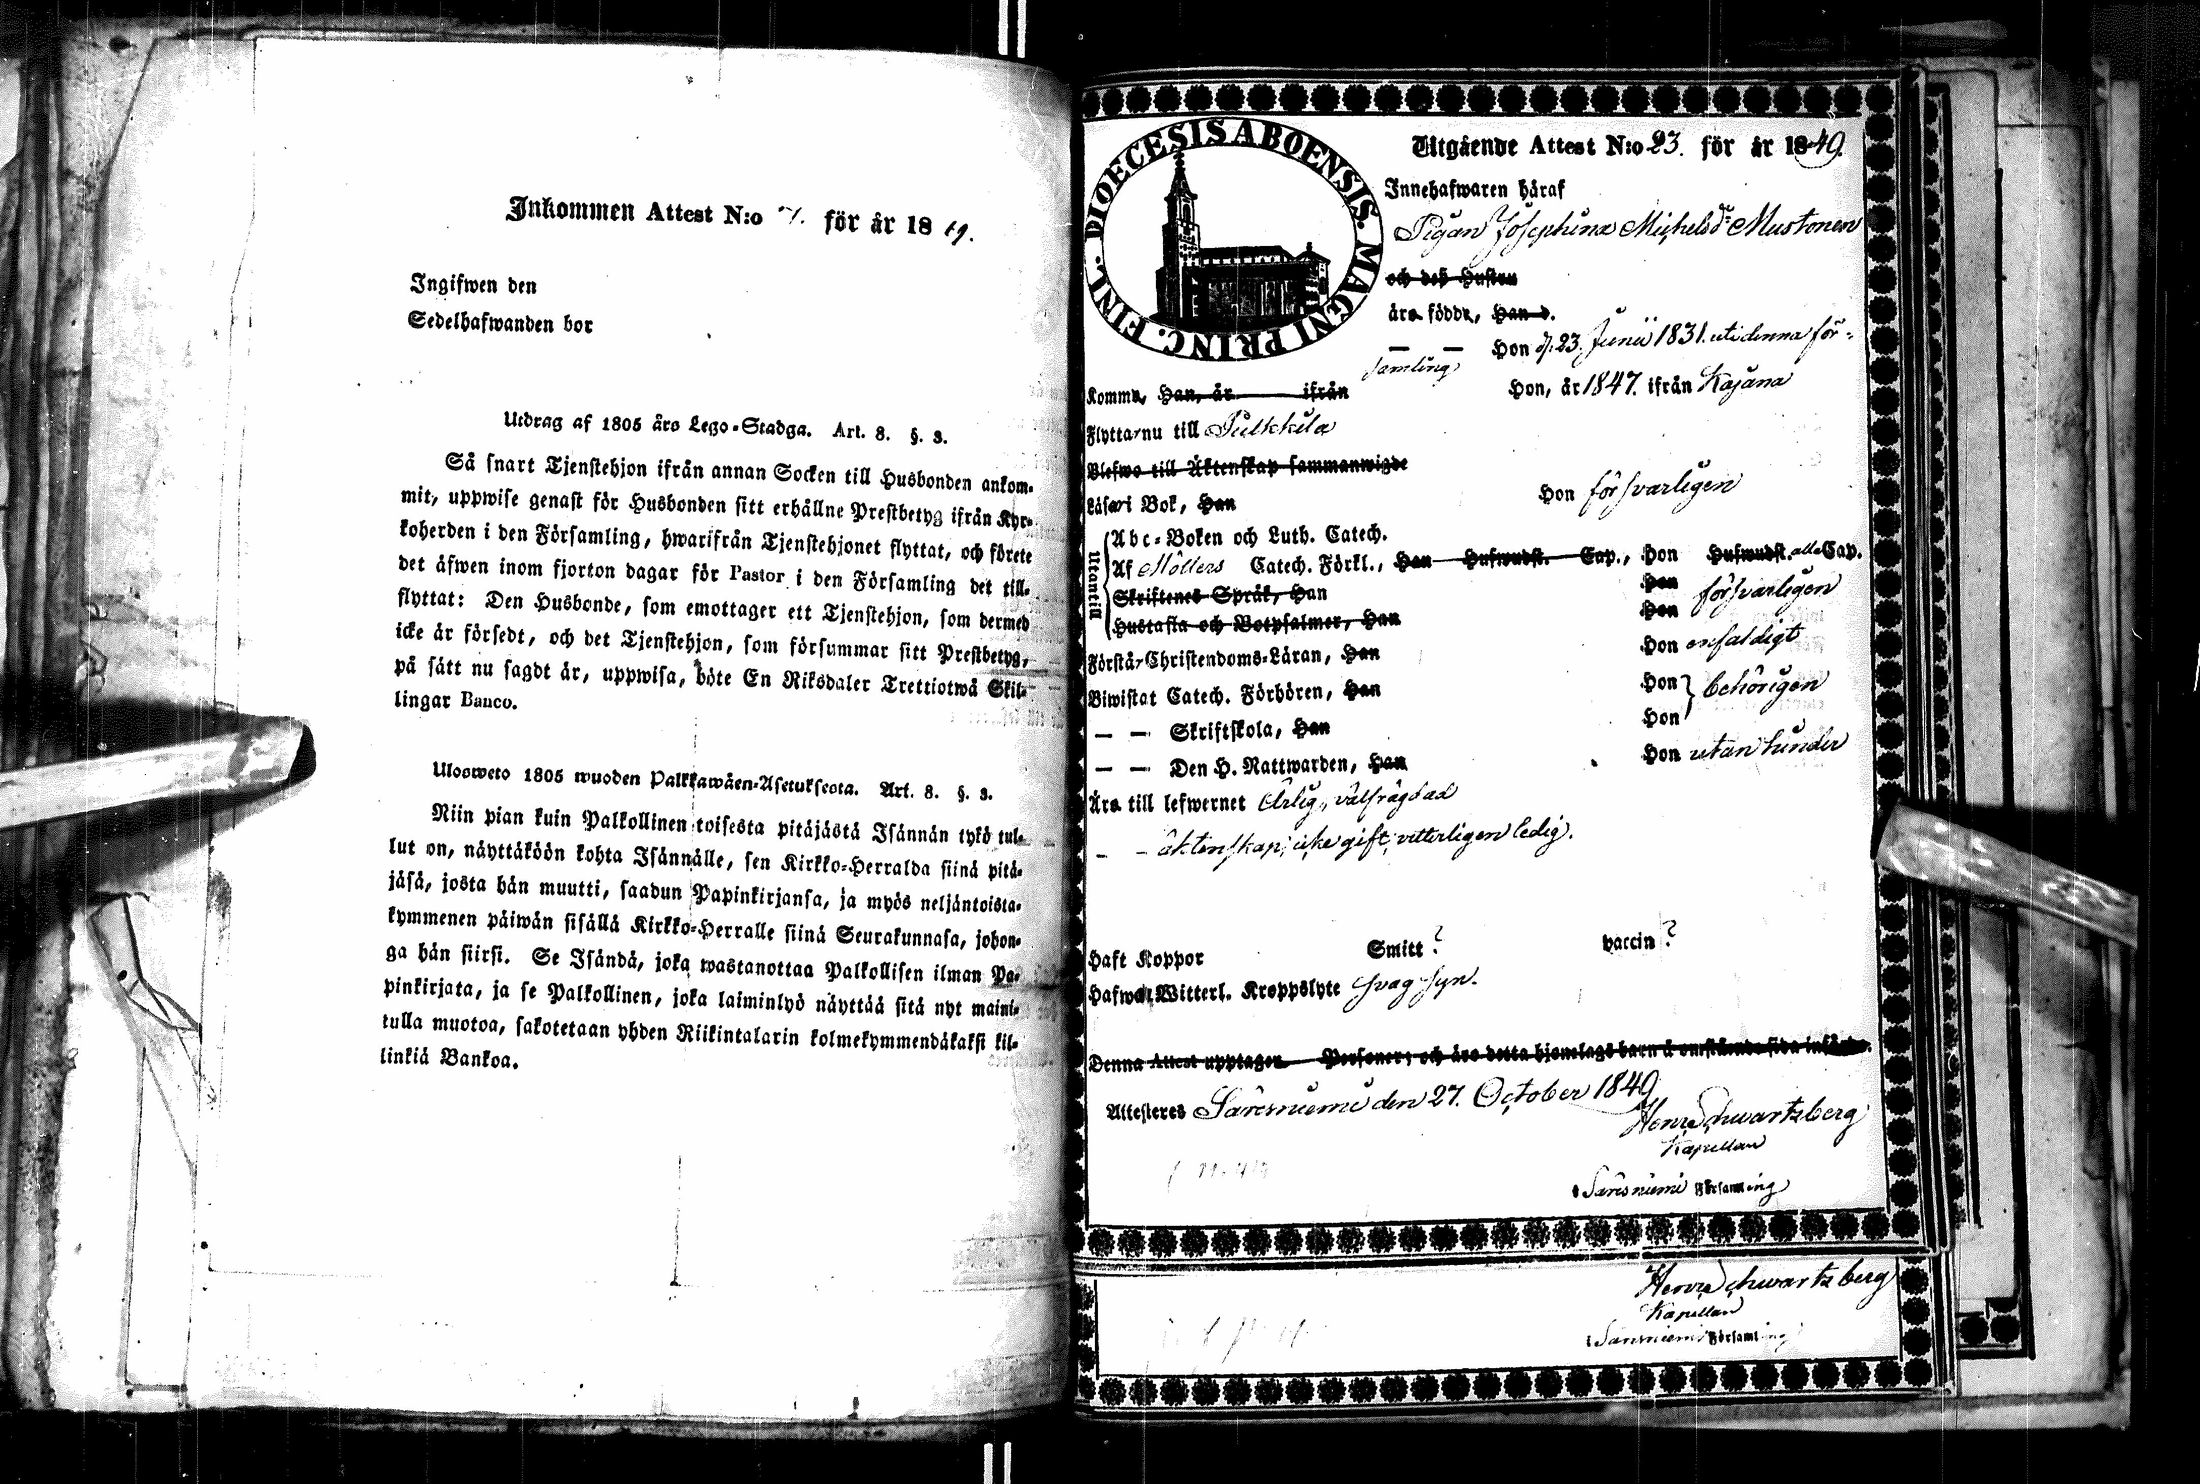 Inkommen Attest N:o 7. för år 18 49.
Ingifwen den
Sedelhafwanden bor
Utdrag af 1805 års Lego-Stadga. Art. 8. §. 3.
Så snart Tjenstehjon ifrån annan Socken till Husbonden ankom-
mit, uppwise genast för Husbonden sitt erhållne Prestbetyg ifrån Kyr-
koherden i den Församling, hwarifrån Tjenstehjonet flyttat, och förete
det äfwen inom fjorton dagar för Pastor i den Församling det till-
flyttat: Den Husbonde, som emottager ett Tjenstehjon, som dermed
icke är försedt, och det Tjenstehjon, som försummar sitt Prestbetyg,
på sätt nu sagdt är, uppwisa, böte En Riksdaler Trettiotwå Skil-
lingar Banco.
Ulosweto 1805 wuoden Palkkawäen-Asetuksesta. Art. 8. §. 3.
Niin pian kuin Palkollinen toisesta pitäjästä Isännän tykö tul-
lut on, näyttäköön kohta Isännälle, sen Kirkko-Herralda siinä pitä-
jäsä, josta hän muutti, saadun Papinkirjansa, ja myös neljäntoista-
kymmenen päiwän sisällä Kirkko-Herralle siinä Seurakunnasa, johon-
ga hän siirsi. Se Isändä, joka wastanottaa Palkollisen ilman Pa-
pinkirjata, ja se Palkollinen, joka laiminlyö näyttää sitä nyt maini-
tulla muotoa, sakotetaan yhden Riikintalarin kolmekymmendäkaksi kil-
linkiä Bankoa.
DIOECESIS ABOENSIS. MAGNI PRINC. FINL.
Utgående Attest N:o 23. för år 1849.
Innehafwaren häraf
Pigan Josephina Michelsdr Mustonen
och deß Hustru
äro födde, Han d.
— — Hon d. 23. Junii 1831. uti denna för-
samling
Komme, Han, år ifrån Hon, år 1847. ifrån Kajana
Flytta nu till Pulkkila
Blefwo till Äktenskap sammanwigde
Läsa i Bok, Han Hon försvarligen
Utantill
Abc-Boken och Luth. Catech.
Af Möllers Catech. Förkl., Han Hufwudst. Cap., Hon Hufwudst. alla Cap.
Skriftenes Språk, Han Hon försvarligen
Hustafla och Botpsalmer, Han Hon
Förstå Christendoms-Läran, Han Hon enfaldigt
Biwistat Catech. Förhören, Han Hon behörigen
— — Skriftskola, Han Hon
— — Den H. Nattwarden, Han Hon utan hinder
Äro till lefwernet ärlig, välfrägdad
— — äktenskap; icke gift, vitterligen ledig.
Haft Koppor Smitt? vaccin?
Hafwa Witterl. Kroppslyte svag syn.
Denna Attest upptager Personer; och äro detta hjonelags barn å omstående sida införde.
Attesteres Säresniemi den 27. October 1849
Henr Schwartzberg
Kapellan
i Säresniemi Församling
Henr Schwartzberg
Kapellan
i Säresniemi Församling